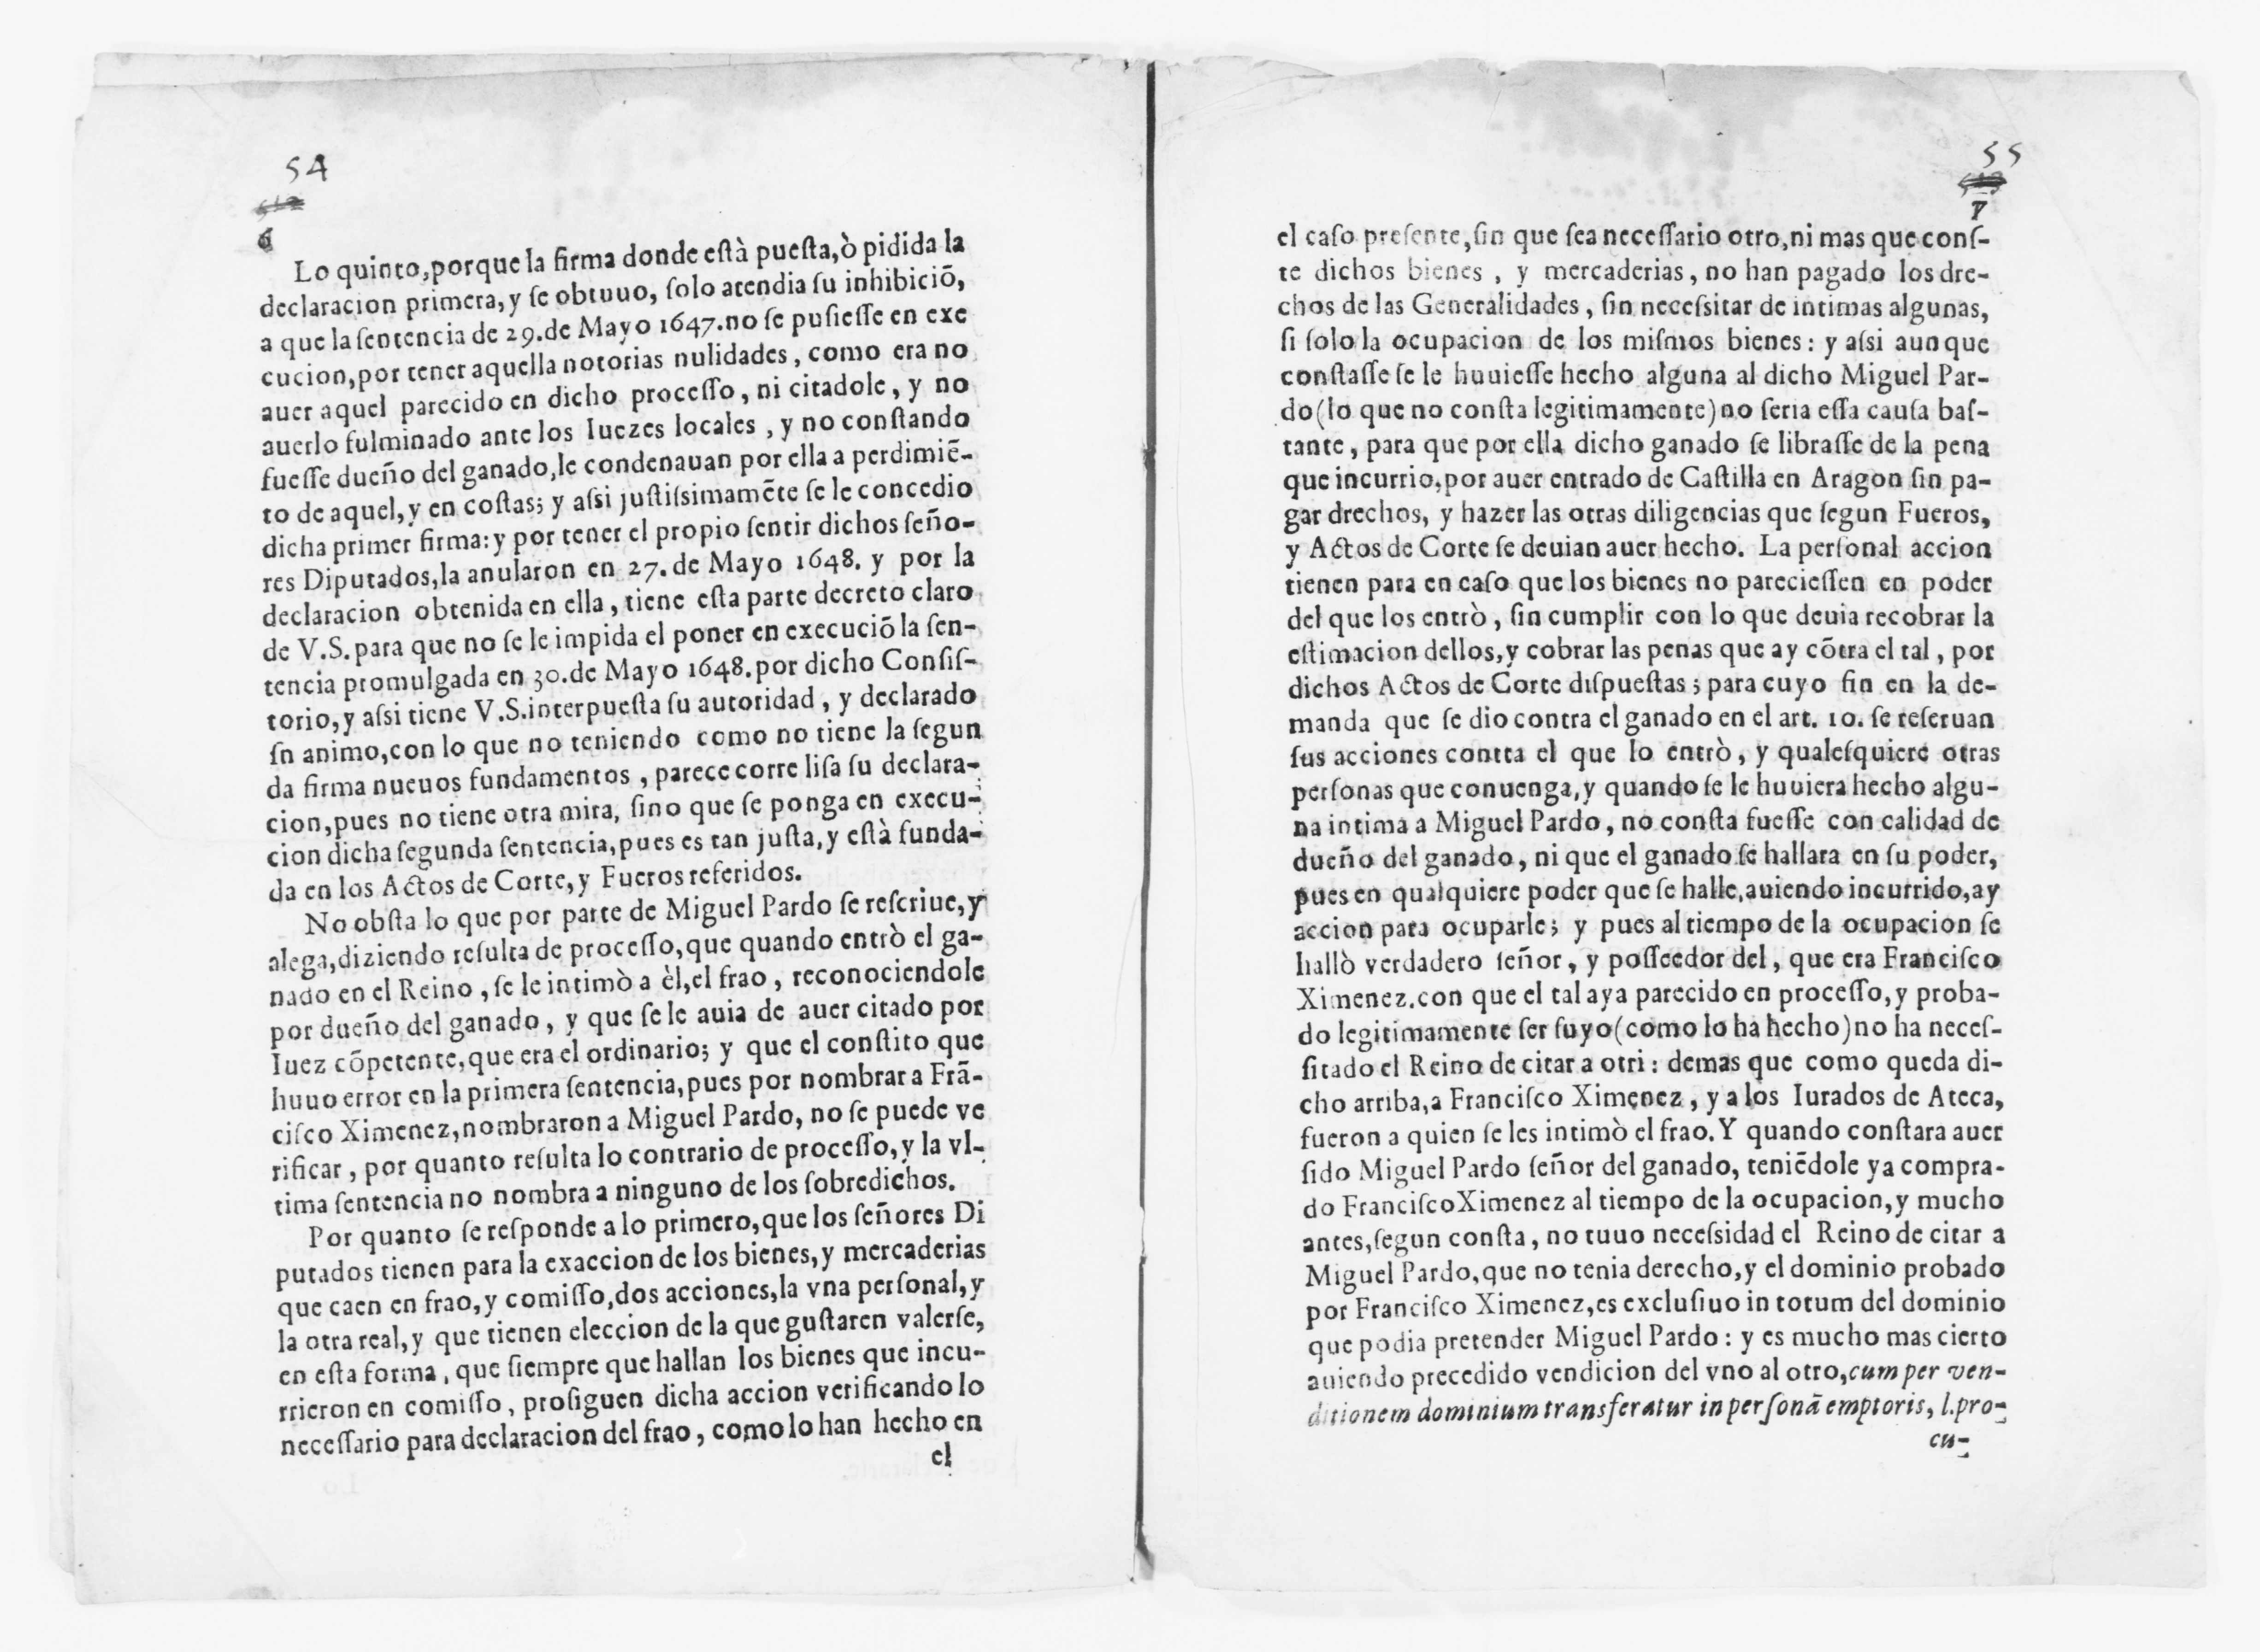 54
6
Lo quinto,porque la firma donde eſtà pueſta,ò pidida la
declaracion primera,y ſe obtuuo, ſolo atendia ſu inhibiciõ,
a que la ſentencia de 29.de Mayo 1647.no ſe puſieſſe en exe
cucion,por tener aquella notorias nulidades, como era no
auer aquel parecido en dicho proceſſo, ni citadole, y no
auerlo fulminado ante los Iuezes locales, y no conſtando
fueſſe dueño del ganado,le condenauan por ella a perdimiẽ-
to de aquel,y en coſtas; y aſsi juſtiſsimamẽte ſe le concedio
dicha primer firma: y por tener el propio ſentir dichos ſeño-
res Diputados,la anularon en 27.de Mayo 1648. y por la
declaracion obtenida en ella, tiene eſta parte decreto claro
de V.S.para que no ſe le impida el poner en execuciõ la ſen-
tencia promulgada en 30.de Mayo 1648.por dicho Conſiſ-
torio,y aſsi tiene V.S.interpueſta ſu autoridad, y declarado
ſn animo,con lo que no teniendo como no tiene la ſegun
da firma nueuos fundamentos, parece corre liſa ſu declara-
cion,pues no tiene otra mira, ſino que ſe ponga en execu-
cion dicha ſegunda ſentencia,pues es tan juſta,y eſtà funda-
da en los Actos de Corte,y Fueros referidos.
No obſta lo que por parte de Miguel Pardo ſe reſcriue,y
alega,diziendo reſulta de proceſſo,que quando entrò el ga-
nado en el Reino, ſe le intimò a èl,el frao, reconociendole
por dueño del ganado, y que ſe le auia de auer citado por
Iuez cõpetente,que era el ordinario; y que el conſtito que
huuo error en la primera ſentencia,pues por nombrar a Frã-
ciſco Ximenez,nombraron a Miguel Pardo, no ſe puede ve
rificar, por quanto reſulta lo contrario de proceſſo,y la vl-
tima ſentencia no nombra a ninguno de los ſobredichos.
Por quanto ſe reſponde a lo primero,que los ſeñores Di
putados tienen para la exaccion de los bienes,y mercaderias
que caen en frao,y comiſſo,dos acciones,la vna perſonal,y
la otra real,y que tienen eleccion de la que guſtaren valerſe,
en eſta forma, que ſiempre que hallan los bienes que incu-
rrieron en comiſſo, proſiguen dicha accion verificando lo
neceſſario para declaracion del frao, como lo han hecho en
el
55
7
el caſo preſente,ſin que ſea neceſſario otro,ni mas que conſ-
te dichos bienes, y mercaderias, no han pagado los dre-
chos de las Generalidades, ſin neceſsitar de intimas algunas,
ſi ſolo la ocupacion de los miſmos bienes: y aſsi aunque
conſtaſſe ſe le huuieſſe hecho alguna al dicho Miguel Par-
do(lo que no conſta legitimamente)no ſeria eſſa cauſa baſ-
tante, para que por ella dicho ganado ſe libraſſe de la pena
que incurrio,por auer entrado de Caſtilla en Aragon ſin pa-
gar drechos, y hazer las otras diligencias que ſegun Fueros,
y Actos de Corte ſe deuian auer hecho. La perſonal accion
tienen para en caſo que los bienes no parecieſſen en poder
del que los entrò, ſin cumplir con lo que deuia recobrar la
eſtimacion dellos,y cobrar las penas que ay cõtra el tal, por
dichos Actos de Corte diſpueſtas; para cuyo fin en la de-
manda que ſe dio contra el ganado en el art. 10. ſe reſeruan
ſus acciones contta el que lo entrò, y qualeſquiere otras
perſonas que conuenga,y quando ſe le huuiera hecho algu-
na intima a Miguel Pardo, no conſta fueſſe con calidad de
dueño del ganado, ni que el ganado ſe hallara en ſu poder,
pues en qualquiere poder que ſe halle,auiendo incurrido,ay
accion para ocuparle; y pues al tiempo de la ocupacion ſe
hallò verdadero ſeñor, y poſſeedor del, que era Franciſco
Ximenez.con que el tal aya parecido en proceſſo,y proba-
do legitimamente ſer ſuyo(como lo ha hecho)no ha neceſ-
ſitado el Reino de citar a otri: demas que como queda di-
cho arriba,a Franciſco Ximenez, y a los Iurados de Ateca,
fueron a quien ſe les intimò el frao.Y quando conſtara auer
ſido Miguel Pardo ſeñor del ganado, teniẽdole ya compra-
do Franciſco Ximenez al tiempo de la ocupacion,y mucho
antes,ſegun conſta, no tuuo neceſsidad el Reino de citar a
Miguel Pardo,que no tenia derecho,y el dominio probado
por Franciſco Ximenez,es excluſiuo in totum del dominio
que podia pretender Miguel Pardo: y es mucho mas cierto
auiendo precedido vendicion del vno al otro,cum per ven-
ditionem dominium transferatur in perſonã emptoris, l.pro-
cu-